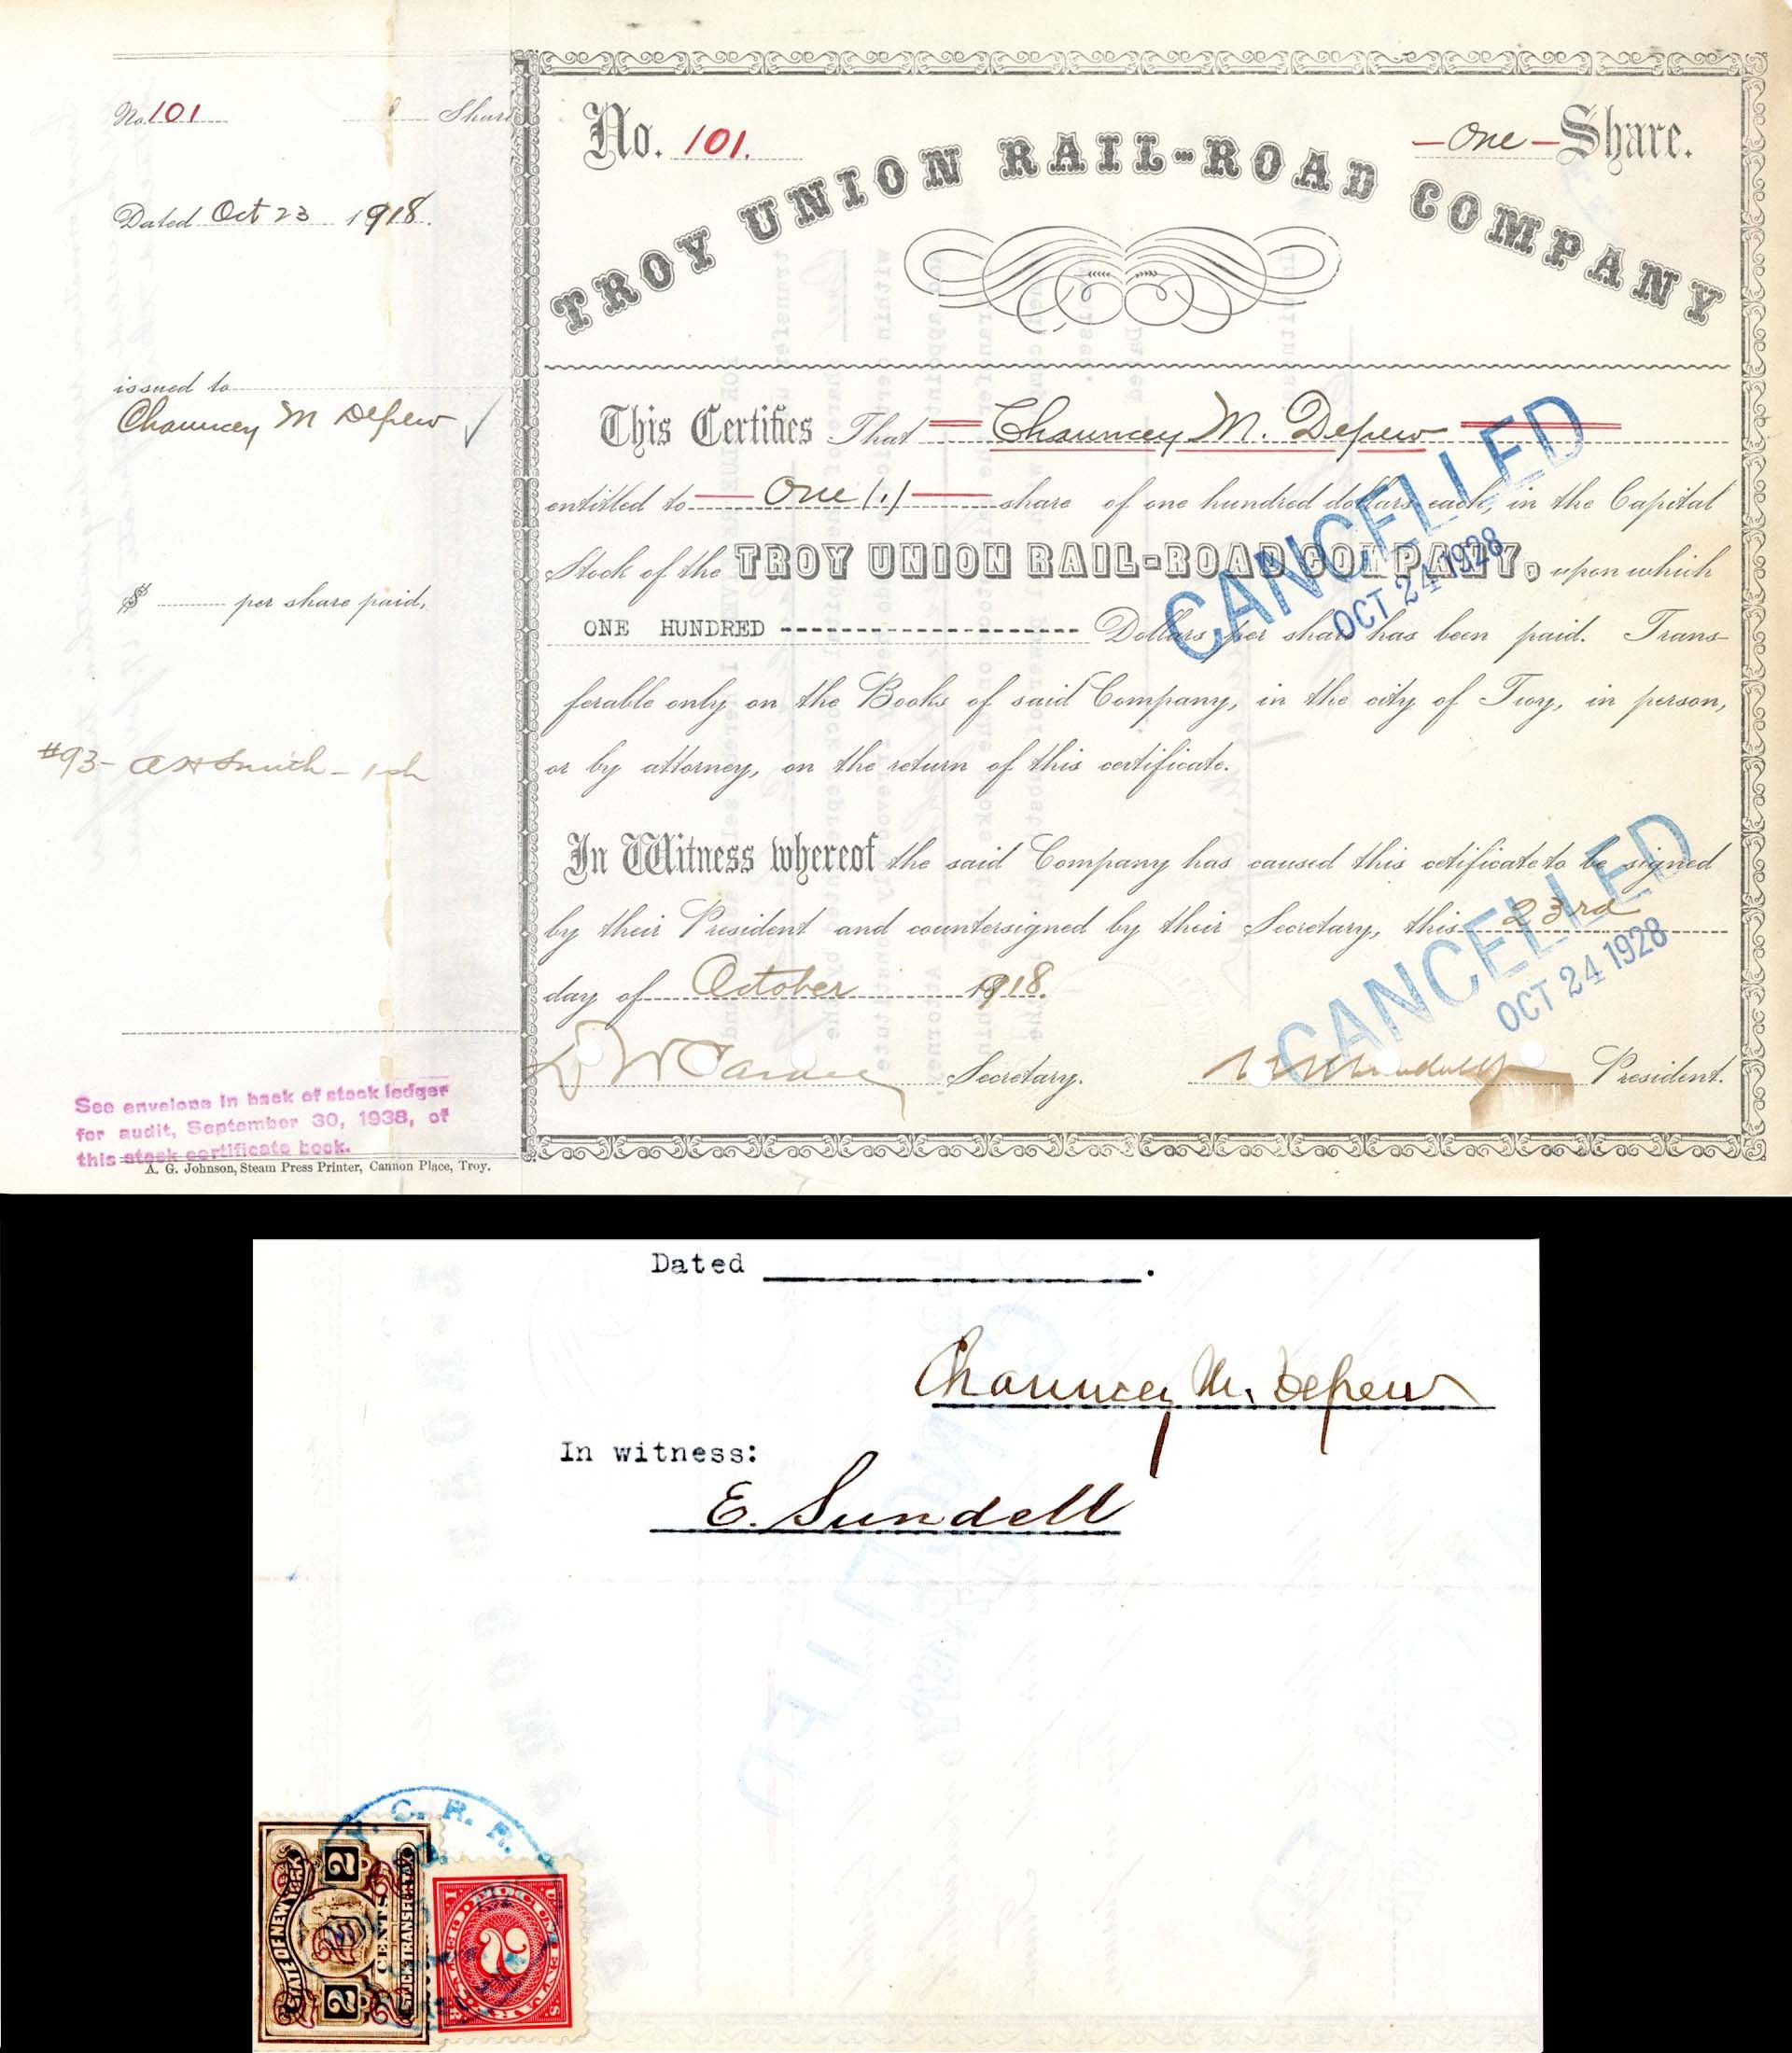 No. 101 1 Share
Dated Oct 23 1918.
issued to
Chauncey M Depew
$ per share paid,
#93- A H Smith - 1 sh
See envelope in back of stock ledger
for audit, September 30, 1938, of
this stock certificate book.
A. G. Johnson, Steam Press Printer, Cannon Place, Troy.
No. 101. — One — Share.
TROY UNION RAIL-ROAD COMPANY
This Certifies That Chauncey M. Depew
entitled to One (1) share of one hundred dollars each, in the Capital
Stock of the TROY UNION RAIL-ROAD COMPANY, upon which
ONE HUNDRED ---------------------- Dollars per share has been paid. Trans-
ferable only on the Books of said Company, in the city of Troy, in person,
or by attorney, on the return of this certificate.
CANCELLED
OCT 24 1928
In Witness whereof the said Company has caused this cetificate to be signed
by their President and countersigned by their Secretary, this 23rd
day of October 1918.
CANCELLED
OCT 24 1928
Secretary. President.
Dated .
Chauncey M. Depew
In witness:
E. Sundell
STATE OF NEW YORK
2 2
CENTS
STOCK TRANSFER TAX
C. R. R.
2